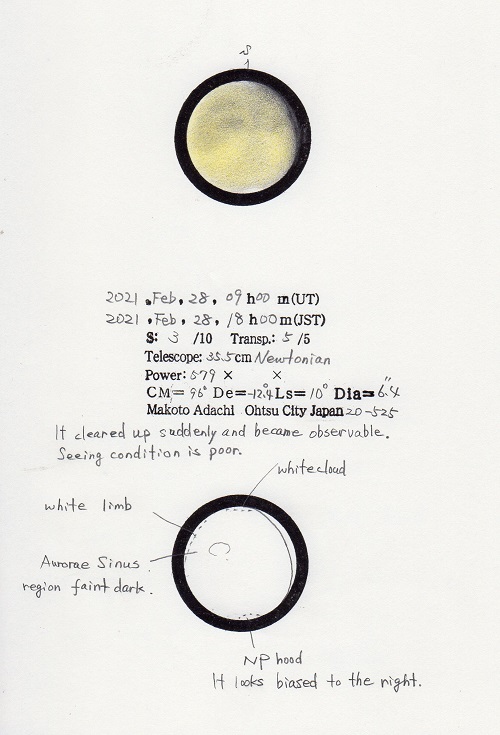 S
2021 . Feb, 28, 09 h 00 m (UT)
2021 . Feb, 28, 18 h 00 m (JST)
S: 3 /10 Transp.: 5 /5
Telescope: 35.5cm Newtonian
Power: 579 × ×
CM= 96° De= -12.4° Ls= 10° Dia= 6.4"
Makoto Adachi Ohtsu City Japan 20-525
It cleared up suddenly and became observable.
Seeing condition is poor.
whitecloud
white limb
Aurorae Sinus
region faint dark.
NP hood
It looks biased to the right.